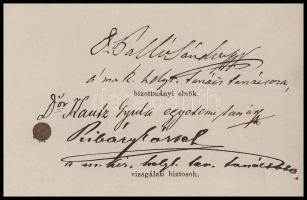 D. Pálló Sándor
a m. k. helyt. tanács tanácsosa,
bizottmányi elnök.
Dor Kautz Gyula egyetemi tanár
Ribáry József
a m. kir. helyt. tan. tanácsosa
vizsgálati biztosok.